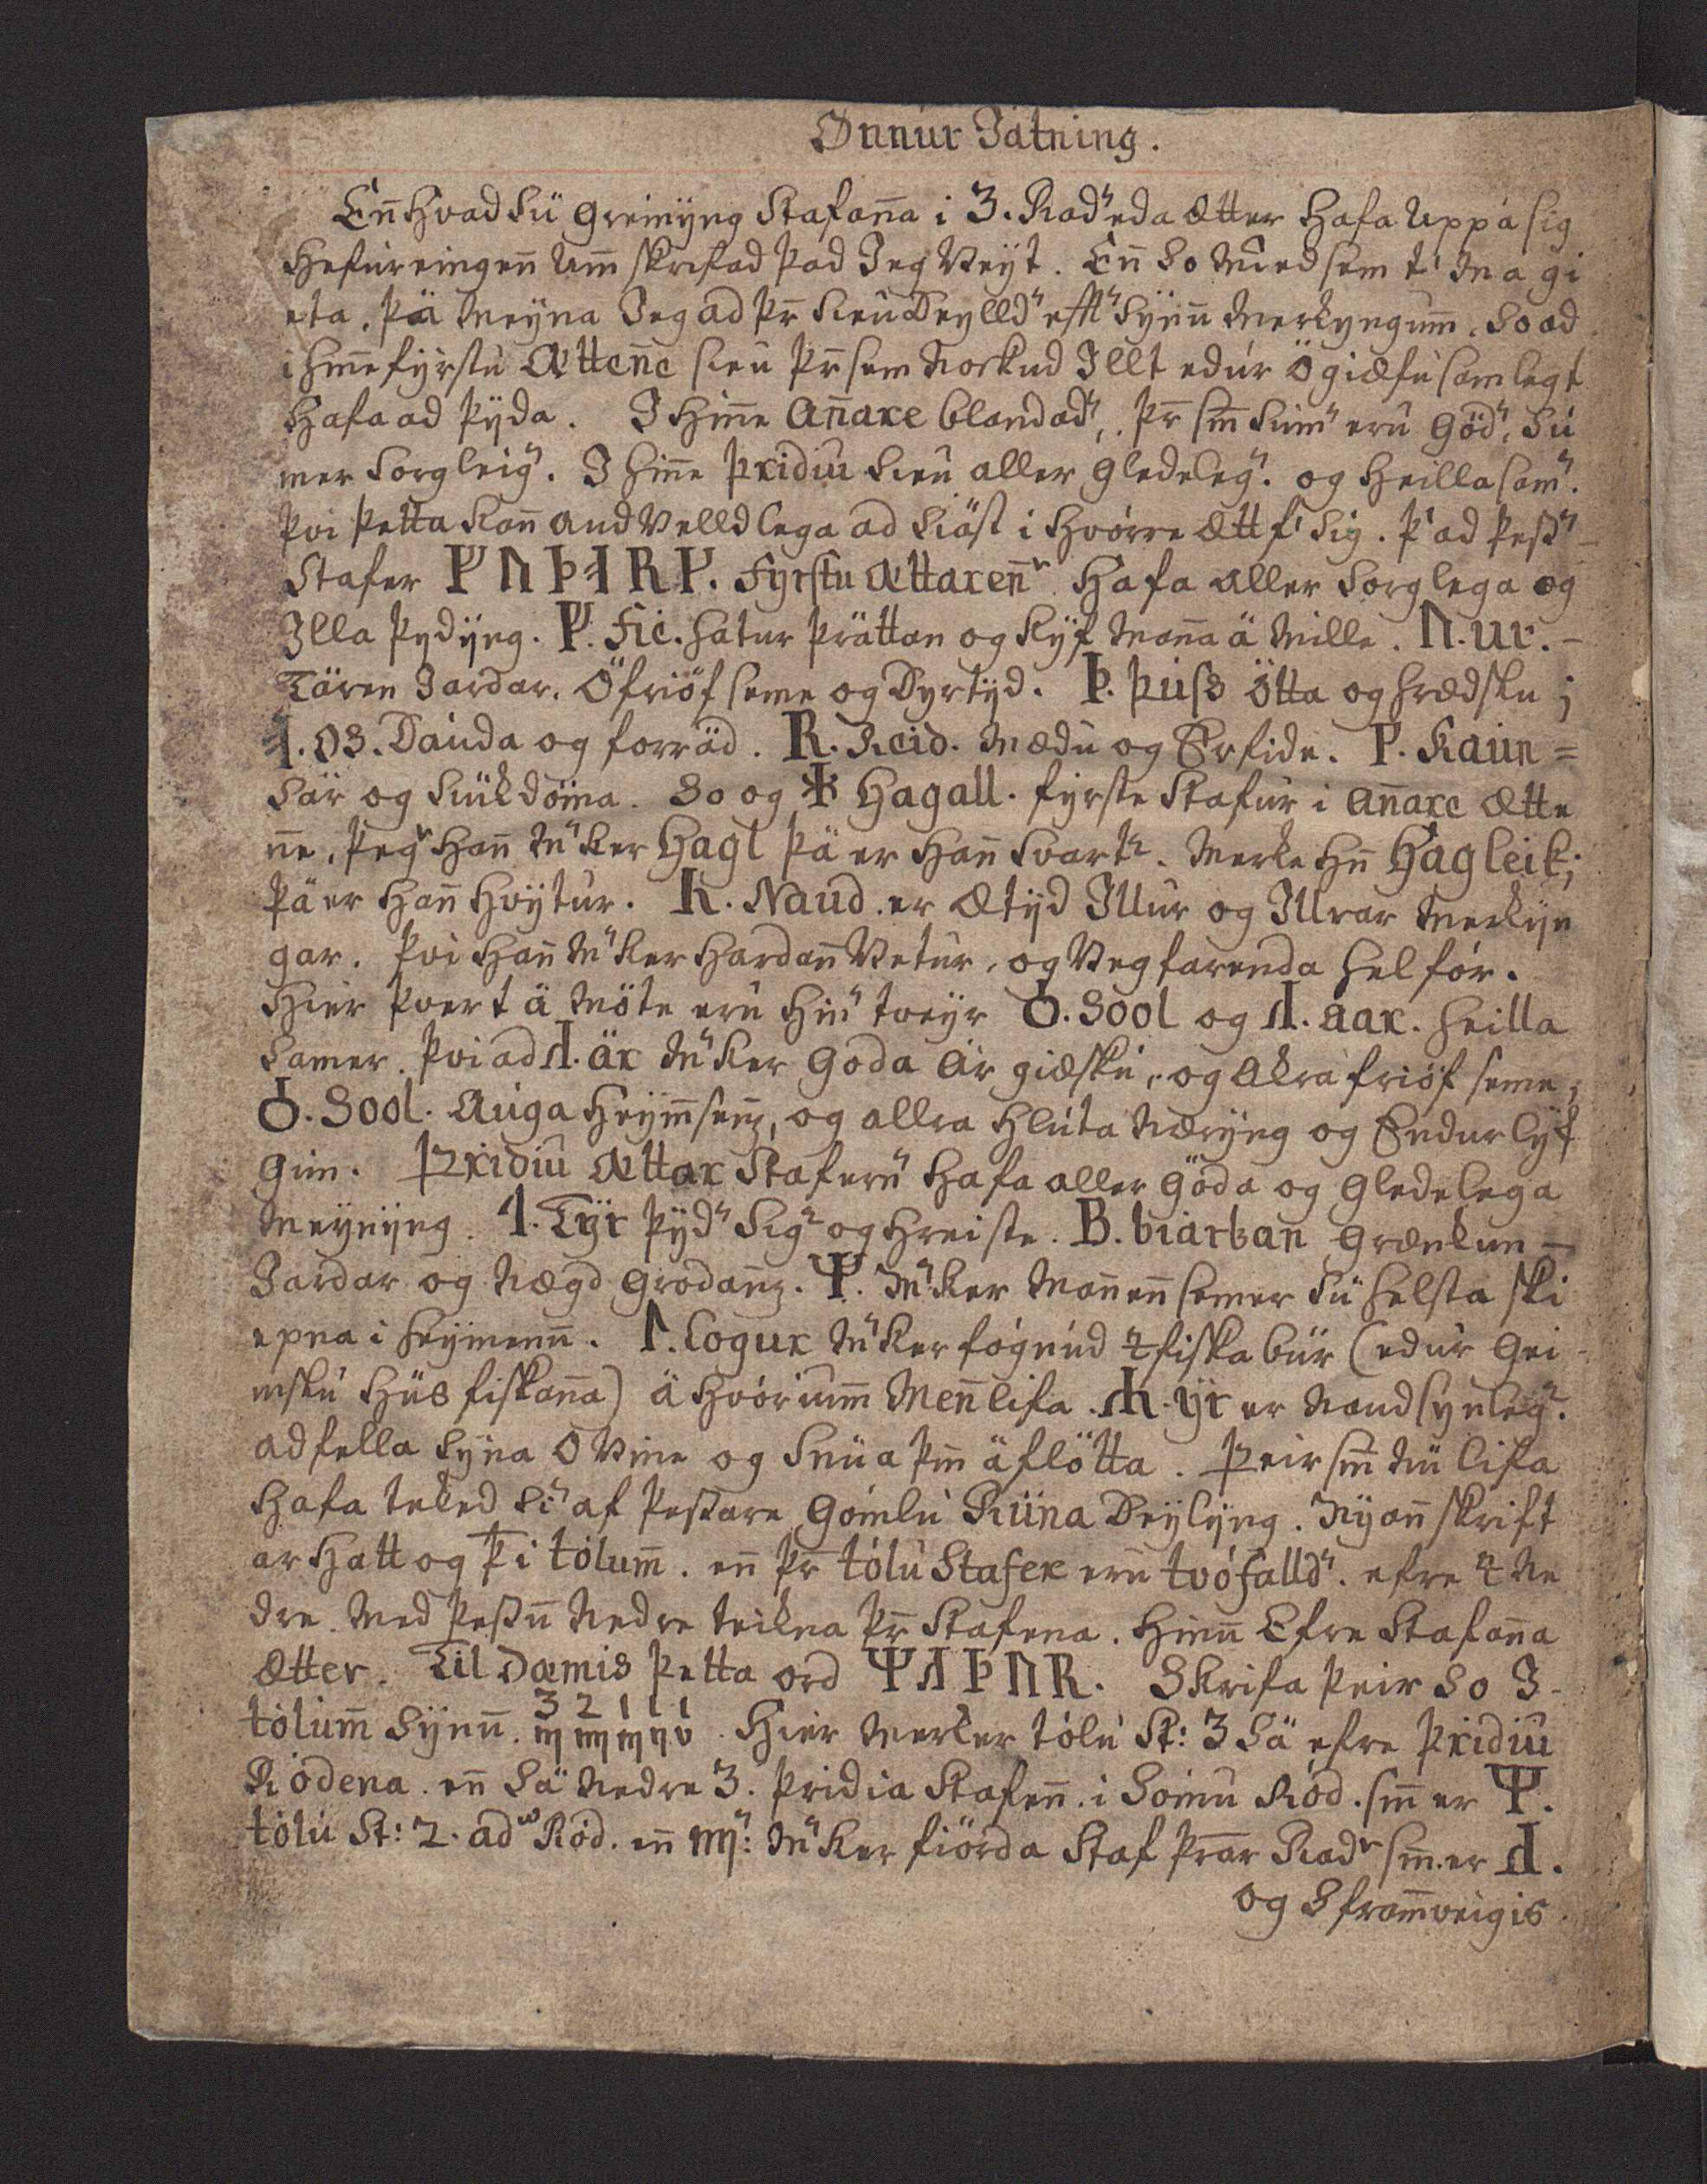 Ønnur Játning.
Enn hvad sü greinyng Stafanna i 3. Rader eda Ætter hafa uppá sig
hefur eingenn umm skrifad þad Jeg veyt. Enn so mied sem t' ma gi
eta, þä meyna Jeg ad þr sieu deylld" efft" sÿnu merkyngum. so ad
i hinne fyrstu Ættene sieu þr sem nockud Jllt edur ögiæfusamlegt
hafa ad þÿda. J hinne annare blandad", þr sem sum" eru göd", su
mer sorgleig". J hinne þridiu sieu aller gledeleg". og heillasam".
þvi þetta kann audvelldlega ad siäst i hvórre ætt f' sig. þ'ad þess"
Stafer ᚠ ᚢ ᚦ ᚬ ᚱ ᚴ. fyrstu Ættarenn" hafa aller sorglega og
Jlla þydÿng. ᚠ. fie. hatur þrättan og kÿf manna ä mille. ᚢ. ur. –
Tären Jardar. Öfriófseme og Dyrtÿd. ᚦ. þuss ötta og hrædslu ;
ᚬ. os. Dauda og forräd. ᚱ. Reid. mædu og Erfide. ᚴ. Kaun =
sär og siükdöma. So og ᚼ Hagall. fyrste Stafur i annare Ætte
nne, þeg" hann m"ker Hagl þä er hann svart". merke hn Hagleik;
þä er hann hvÿtur. ᚾ. Naud. er ætÿd Jllur og Jllrar merkÿn
gar. þvi hann m"ker hardann vetur, og vegfarenda helfór.
Hier þvert ä móte eru hin" tveyr ᛋ. Sool og ᛅ. aar. heilla
samer. þvi ad ᛅ. är m"ker goda ár giæsku, og akra friófseme,
ᛋ. Sool. Auga heymsenz, og allra hluta næryng og Endurlÿf
gun. Þridiu Ættar Stafern" hafa aller göda og gledelega
meynÿng. ᛏ. Tÿr þÿd" sig" og hreiste. ᛒ. biarkan grænkun –
Jardar og nægd grodanz. ᛘ. m"ker mannenn sem er sü helsta ski
epna i heymenum. ᛚ. logur m"ker fógnud & fiskabür (edur gei
msku hüs fiskanna) ä hvórium menn lifa. ᛦ. ÿr er naudsynleg".
ad fella sÿna Ovine og snüa þm ä flötta. Þeir sem nü lifa
hafa teked si" af þessare gómlu Rüna Deylÿng. Nÿann skrift
ar hatt og þ i tólum. enn þr tólu Stafer eru tvófalld". efre & ne
dre. med þessu nedre teikna þr Stafena. hinu Efre Stafanna
Ætter. Til Dæmis þetta ord ᛘ ᛅ ᚦ ᚢ ᚱ. Skrifa þeir so J
tólum sÿnu. 3 2 1 1 1
iij iiij iij ij v. Hier merker tólu St: 3 Sä efre þridiu
Rödena. enn sä nedre 3. þridia Stafenn i sómu Röd. sem er ᛘ.
tólu St: 2. adra Röd. enn iiij: m"ker fiórda Staf þrar Radr sem er ᛅ.
og S frammveigis